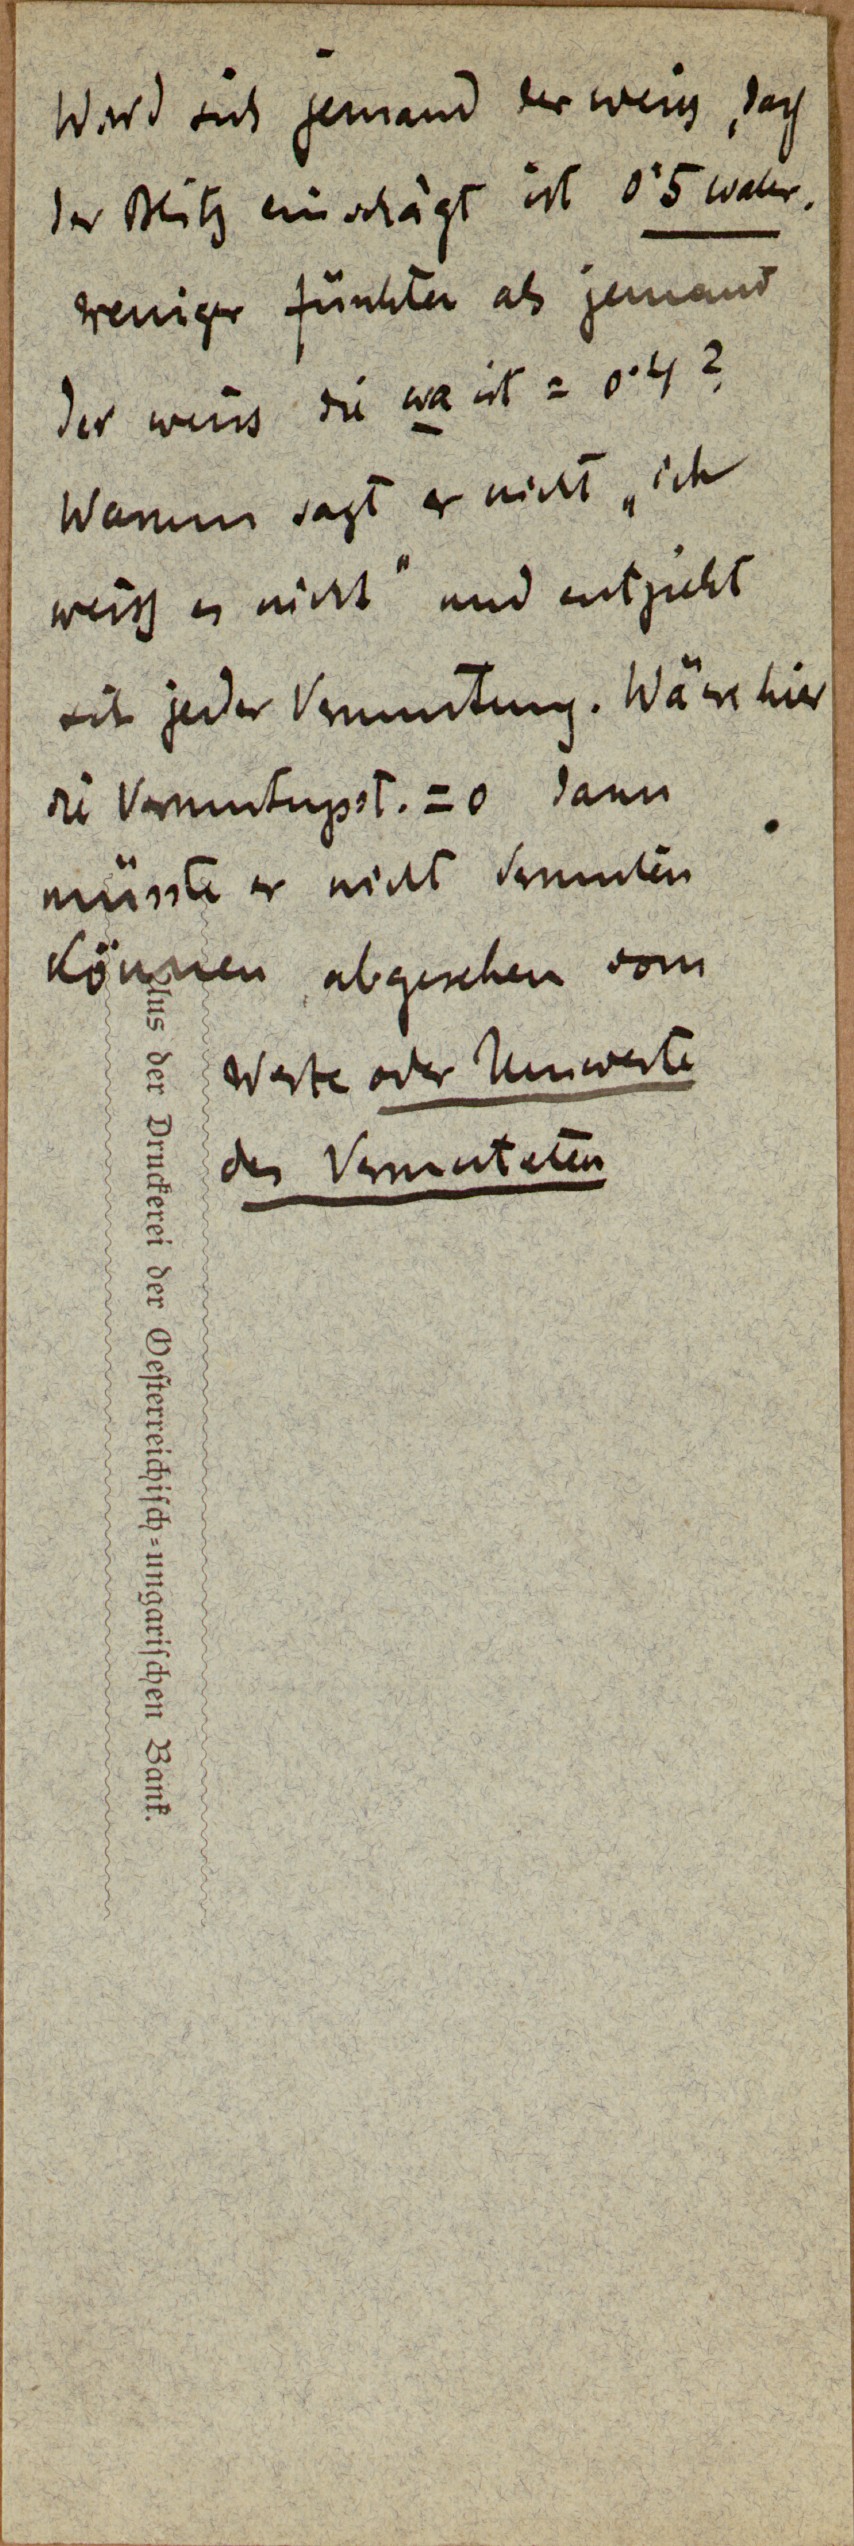 Wird sich jemand der weiss, daß
der Blitz einschlägt ist 0·5 wahr.
weniger fürchten als jemand
der weiss die wa ist = 0·4?
Warum sagt er nicht „ich
weiß es nicht" und entzieht
sich jeder Vermutung. Wäre hier
die Vermutungsst. = 0 dann
müsste er nicht vermuten
können abgesehen vom
Werte oder Unwerte
des Vermuteten
Aus der Druckerei der Oesterreichisch-ungarischen Bank.